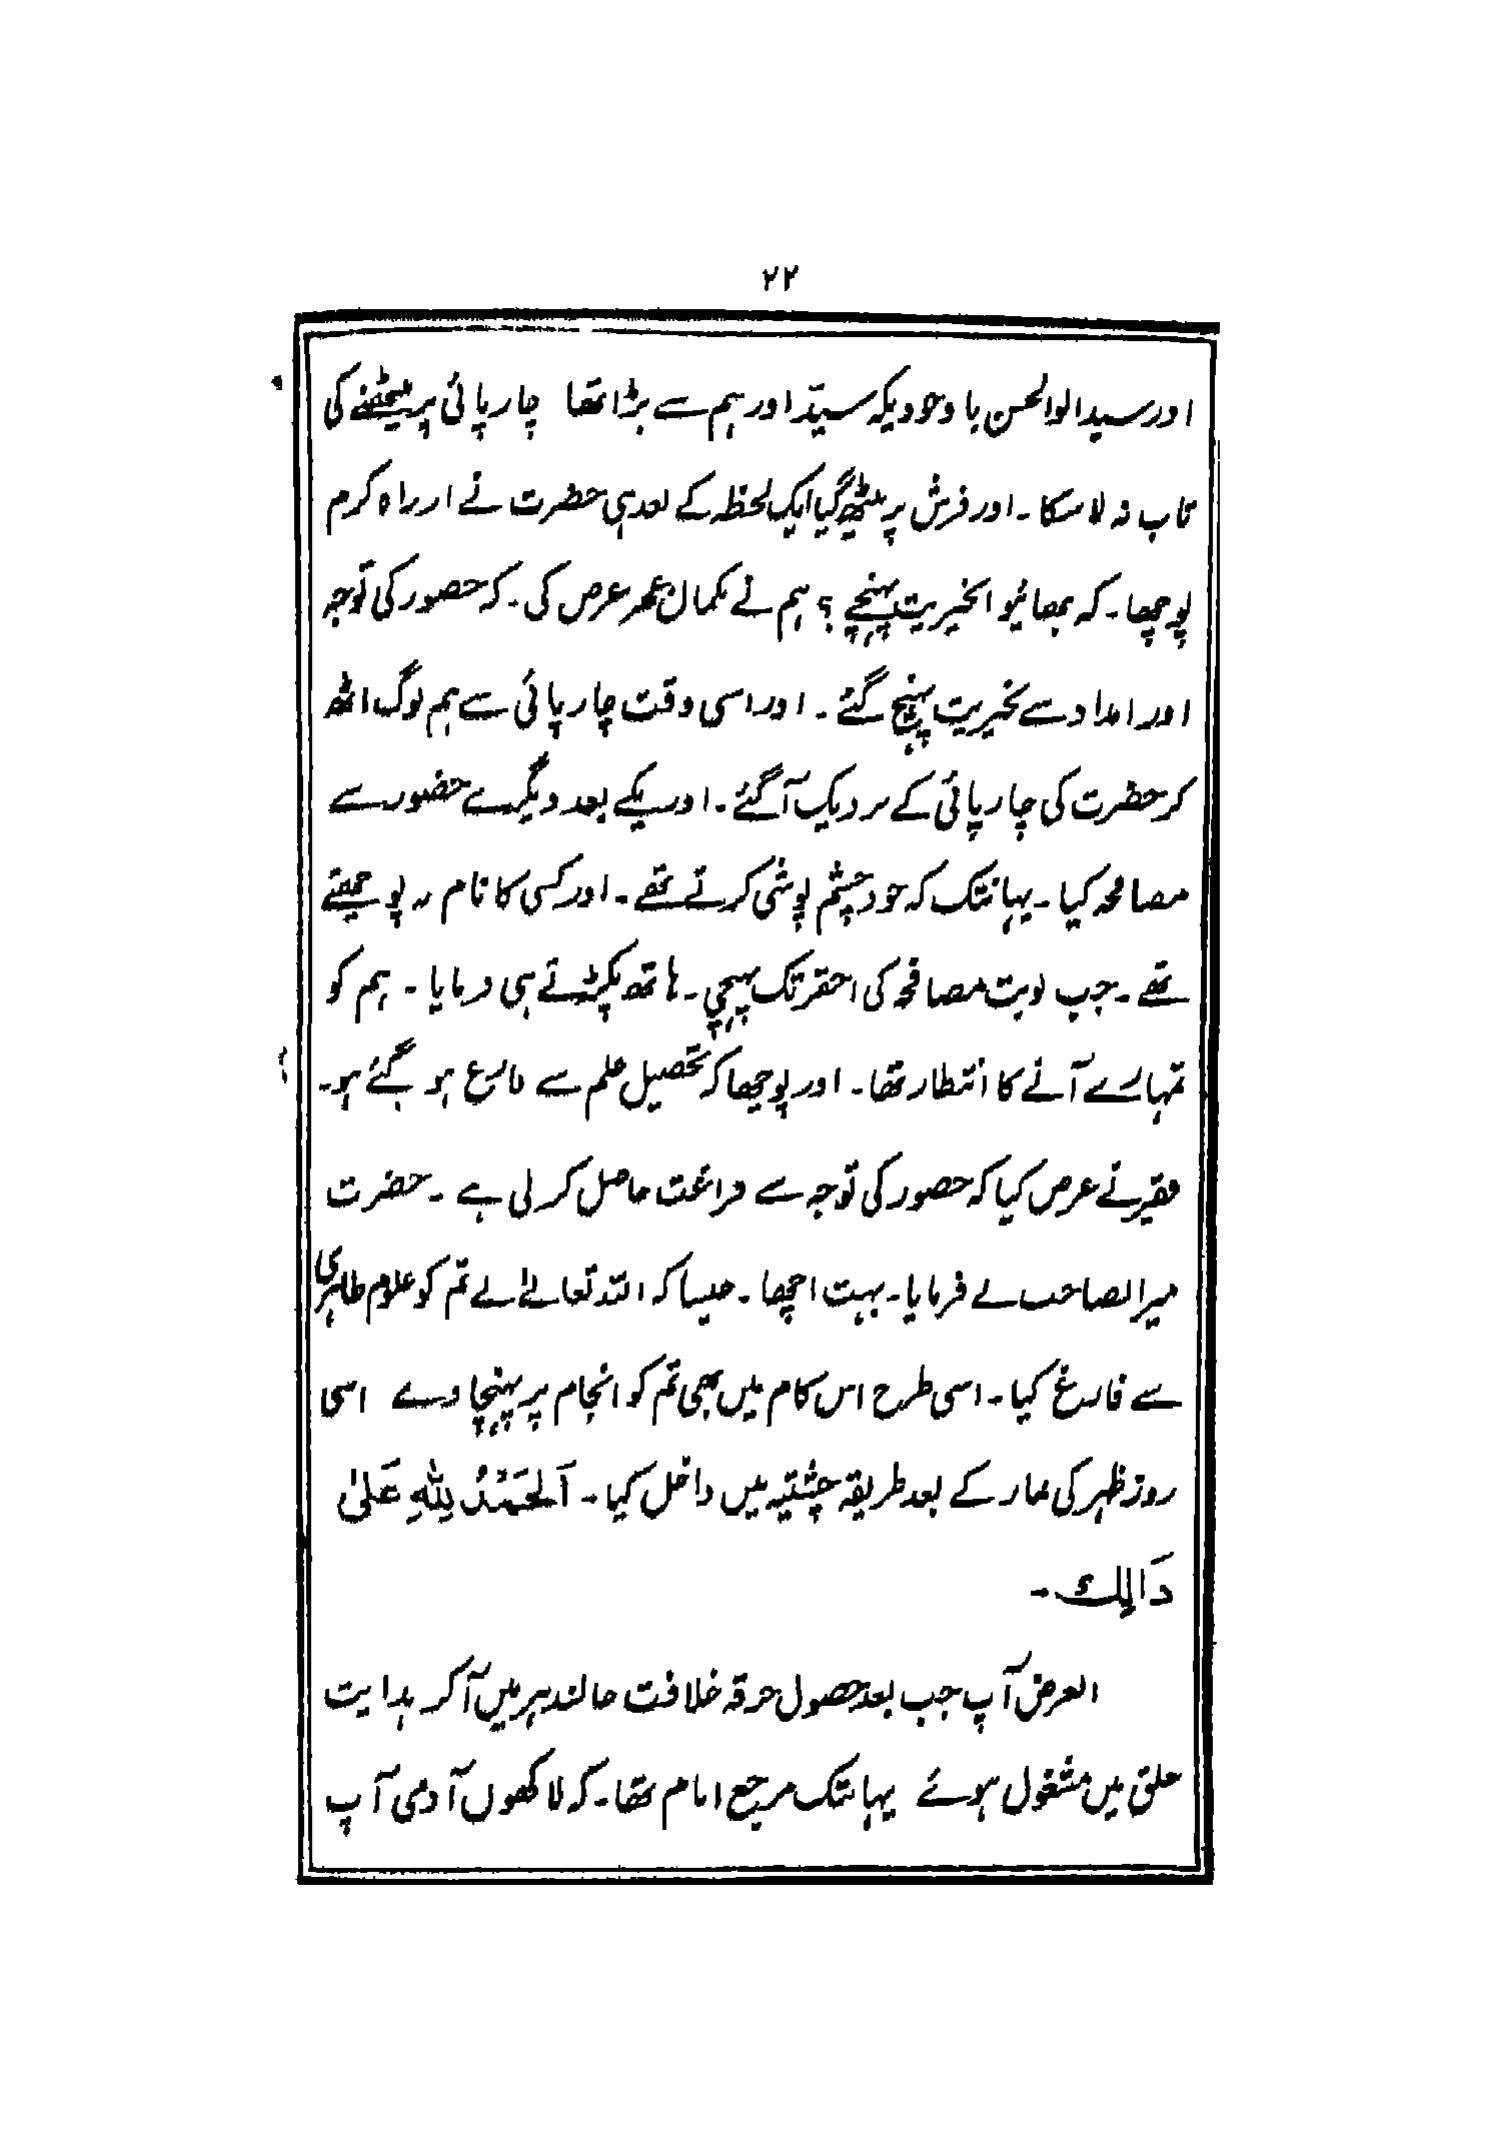 ۲۲
اور سید ابوالحسن باوجودیکہ سیّد اور ہم سے بڑا تھا چارپائی پر بیٹھنے کی
تاب نہ لا سکا۔ اور فرش پر بیٹھ گیا ایک لحظہ کے بعد ہی حضرت نے ازراہ کرم
پوچھا۔ کہ بھائیو بخیریت پہنچے ؟ ہم نے بکمال عجز عرض کی۔ کہ حضور کی توجہ
اور امداد سے بخیریت پہنچ گئے۔ اور اسی وقت چارپائی سے ہم لوگ اٹھ
کر حضرت کی چارپائی کے نزدیک آگئے۔ اور یکے بعد دیگرے حضور سے
مصافحہ کیا۔ یہانتک کہ خود چشم پوشی کرتے تھے۔ اور کسی کا نام نہ پوچھتے
تھے۔ جب نوبت مصافحہ کی احقر تک پہنچی۔ ہاتھ پکڑتے ہی فرمایا۔ ہم کو
تمہارے آنے کا انتظار تھا۔ اور پوچھا کہ تحصیل علم سے فارغ ہو گئے ہو۔
فقیر نے عرض کیا کہ حضور کی توجہ سے فراغت حاصل کر لی ہے۔ حضرت
میرانصاحب نے فرمایا۔ بہت اچھا۔ جیسا کہ اللہ تعالےٰ نے تم کو علوم ظاہری
سے فارغ کیا۔ اسی طرح اس کام میں بھی تم کو انجام پر پہنچاوے اسی
روز ظہر کی نماز کے بعد طریقہ چشتیہ میں داخل کیا۔ اَلحَمدُ لِلّٰہِ عَلیٰ
ذَالِک۔
الغرض آپ جب بعد حصول خرقہ خلافت جالندہر میں آکر ہدایت
خلق میں مشغول ہوئے یہانتک مرجع انام تھا۔ کہ لاکھوں آدمی آپ